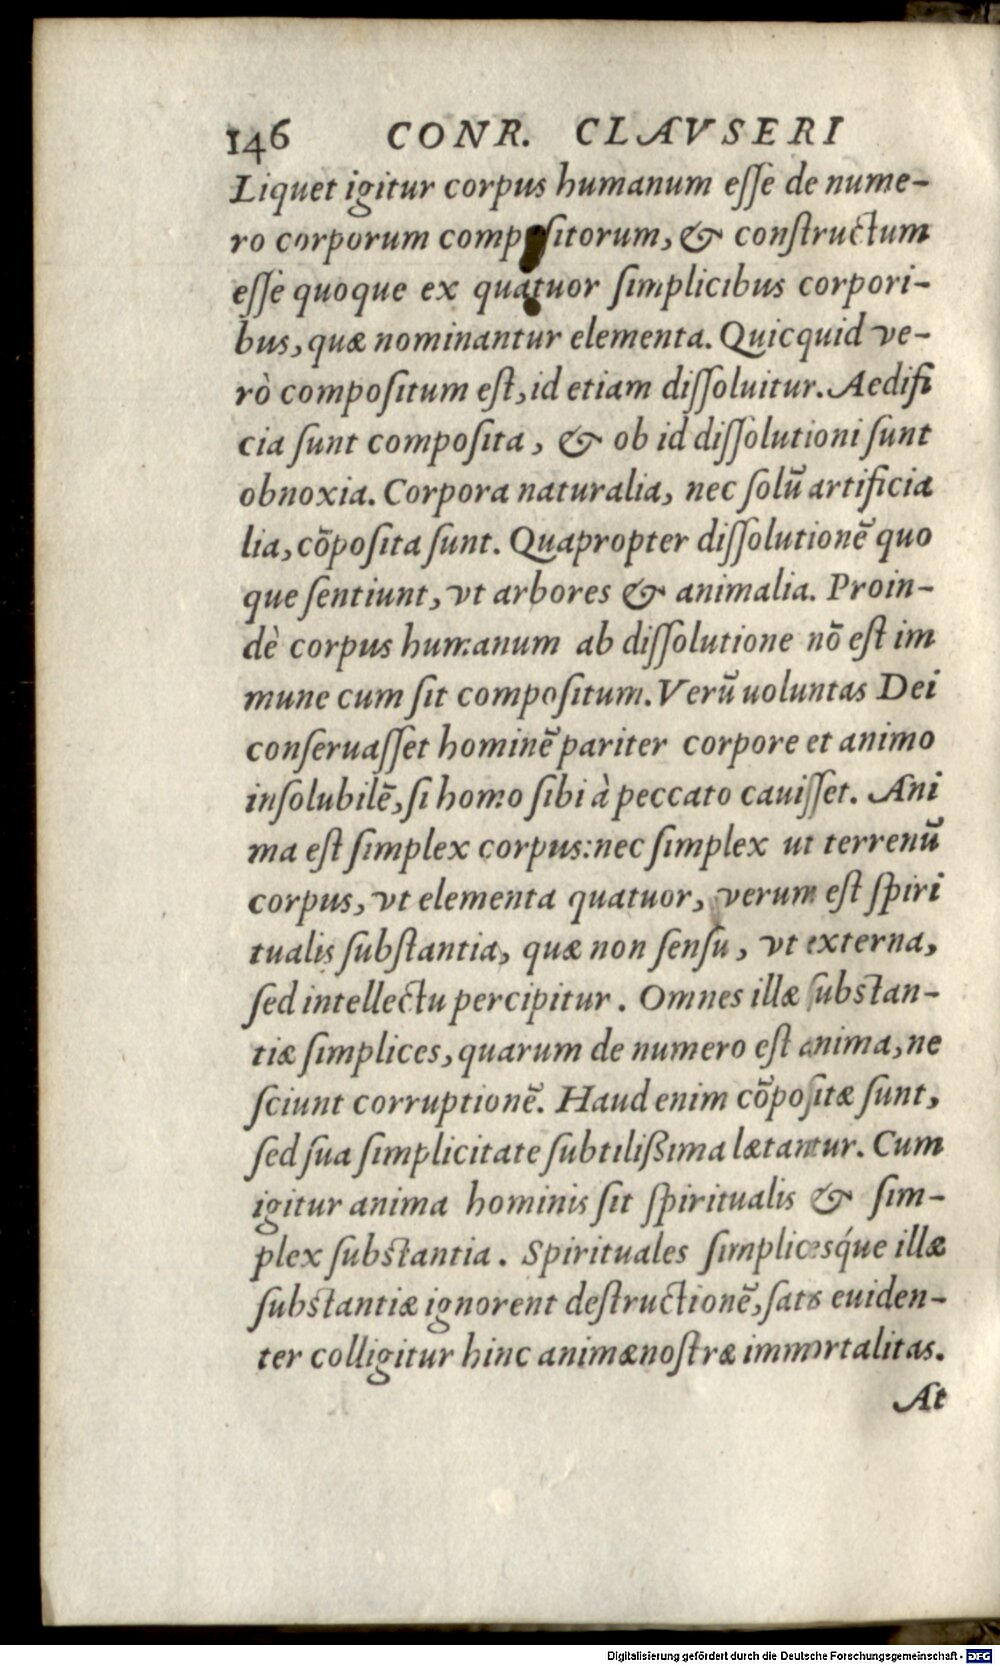 146 CONR. CLAVSERI
Liquet igitur corpus humanum eſſe de nume-
ro corporum compoſitorum, & conſtructum
eſſe quoque ex quatuor ſimplicibus corpori-
bus, quæ nominantur elementa. Quicquid ve-
rò compoſitum eſt, id etiam diſſoluitur. Aedifi
cia ſunt compoſita, & ob id diſſolutioni ſunt
obnoxia. Corpora naturalia, nec ſolũ artificia
lia, cõpoſita ſunt. Quapropter diſſolutionẽ quo
que ſentiunt, vt arbores & animalia. Proin-
dè corpus humanum ab diſſolutione nõ eſt im
mune cum ſit compoſitum. Verũ uoluntas Dei
conſeruaſſet hominẽ pariter corpore et animo
inſolubilẽ, ſi homo ſibi à peccato cauiſſet. Ani
ma eſt ſimplex corpus: nec ſimplex ut terrenũ
corpus, vt elementa quatuor, verum eſt ſpiri
tualis ſubſtantia, quæ non ſenſu, vt externa,
ſed intellectu percipitur. Omnes illæ ſubſtan-
tiæ ſimplices, quarum de numero eſt anima, ne
ſciunt corruptionẽ. Haud enim cõpoſitæ ſunt,
ſed ſua ſimplicitate ſubtilißima lætantur. Cum
igitur anima hominis ſit ſpiritualis & ſim-
plex ſubſtantia. Spirituales ſimplicesq́ue illæ
ſubſtantiæ ignorent deſtructionẽ, ſatis euiden-
ter colligitur hinc animæ noſtræ immortalitas.
At
Digitalisierung gefördert durch die Deutsche Forschungsgemeinschaft - DFG